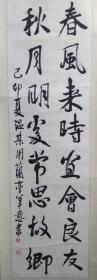 春風来時宜會良友
秋月明處常思故鄉
己卯夏温某用蘭亭筆意書